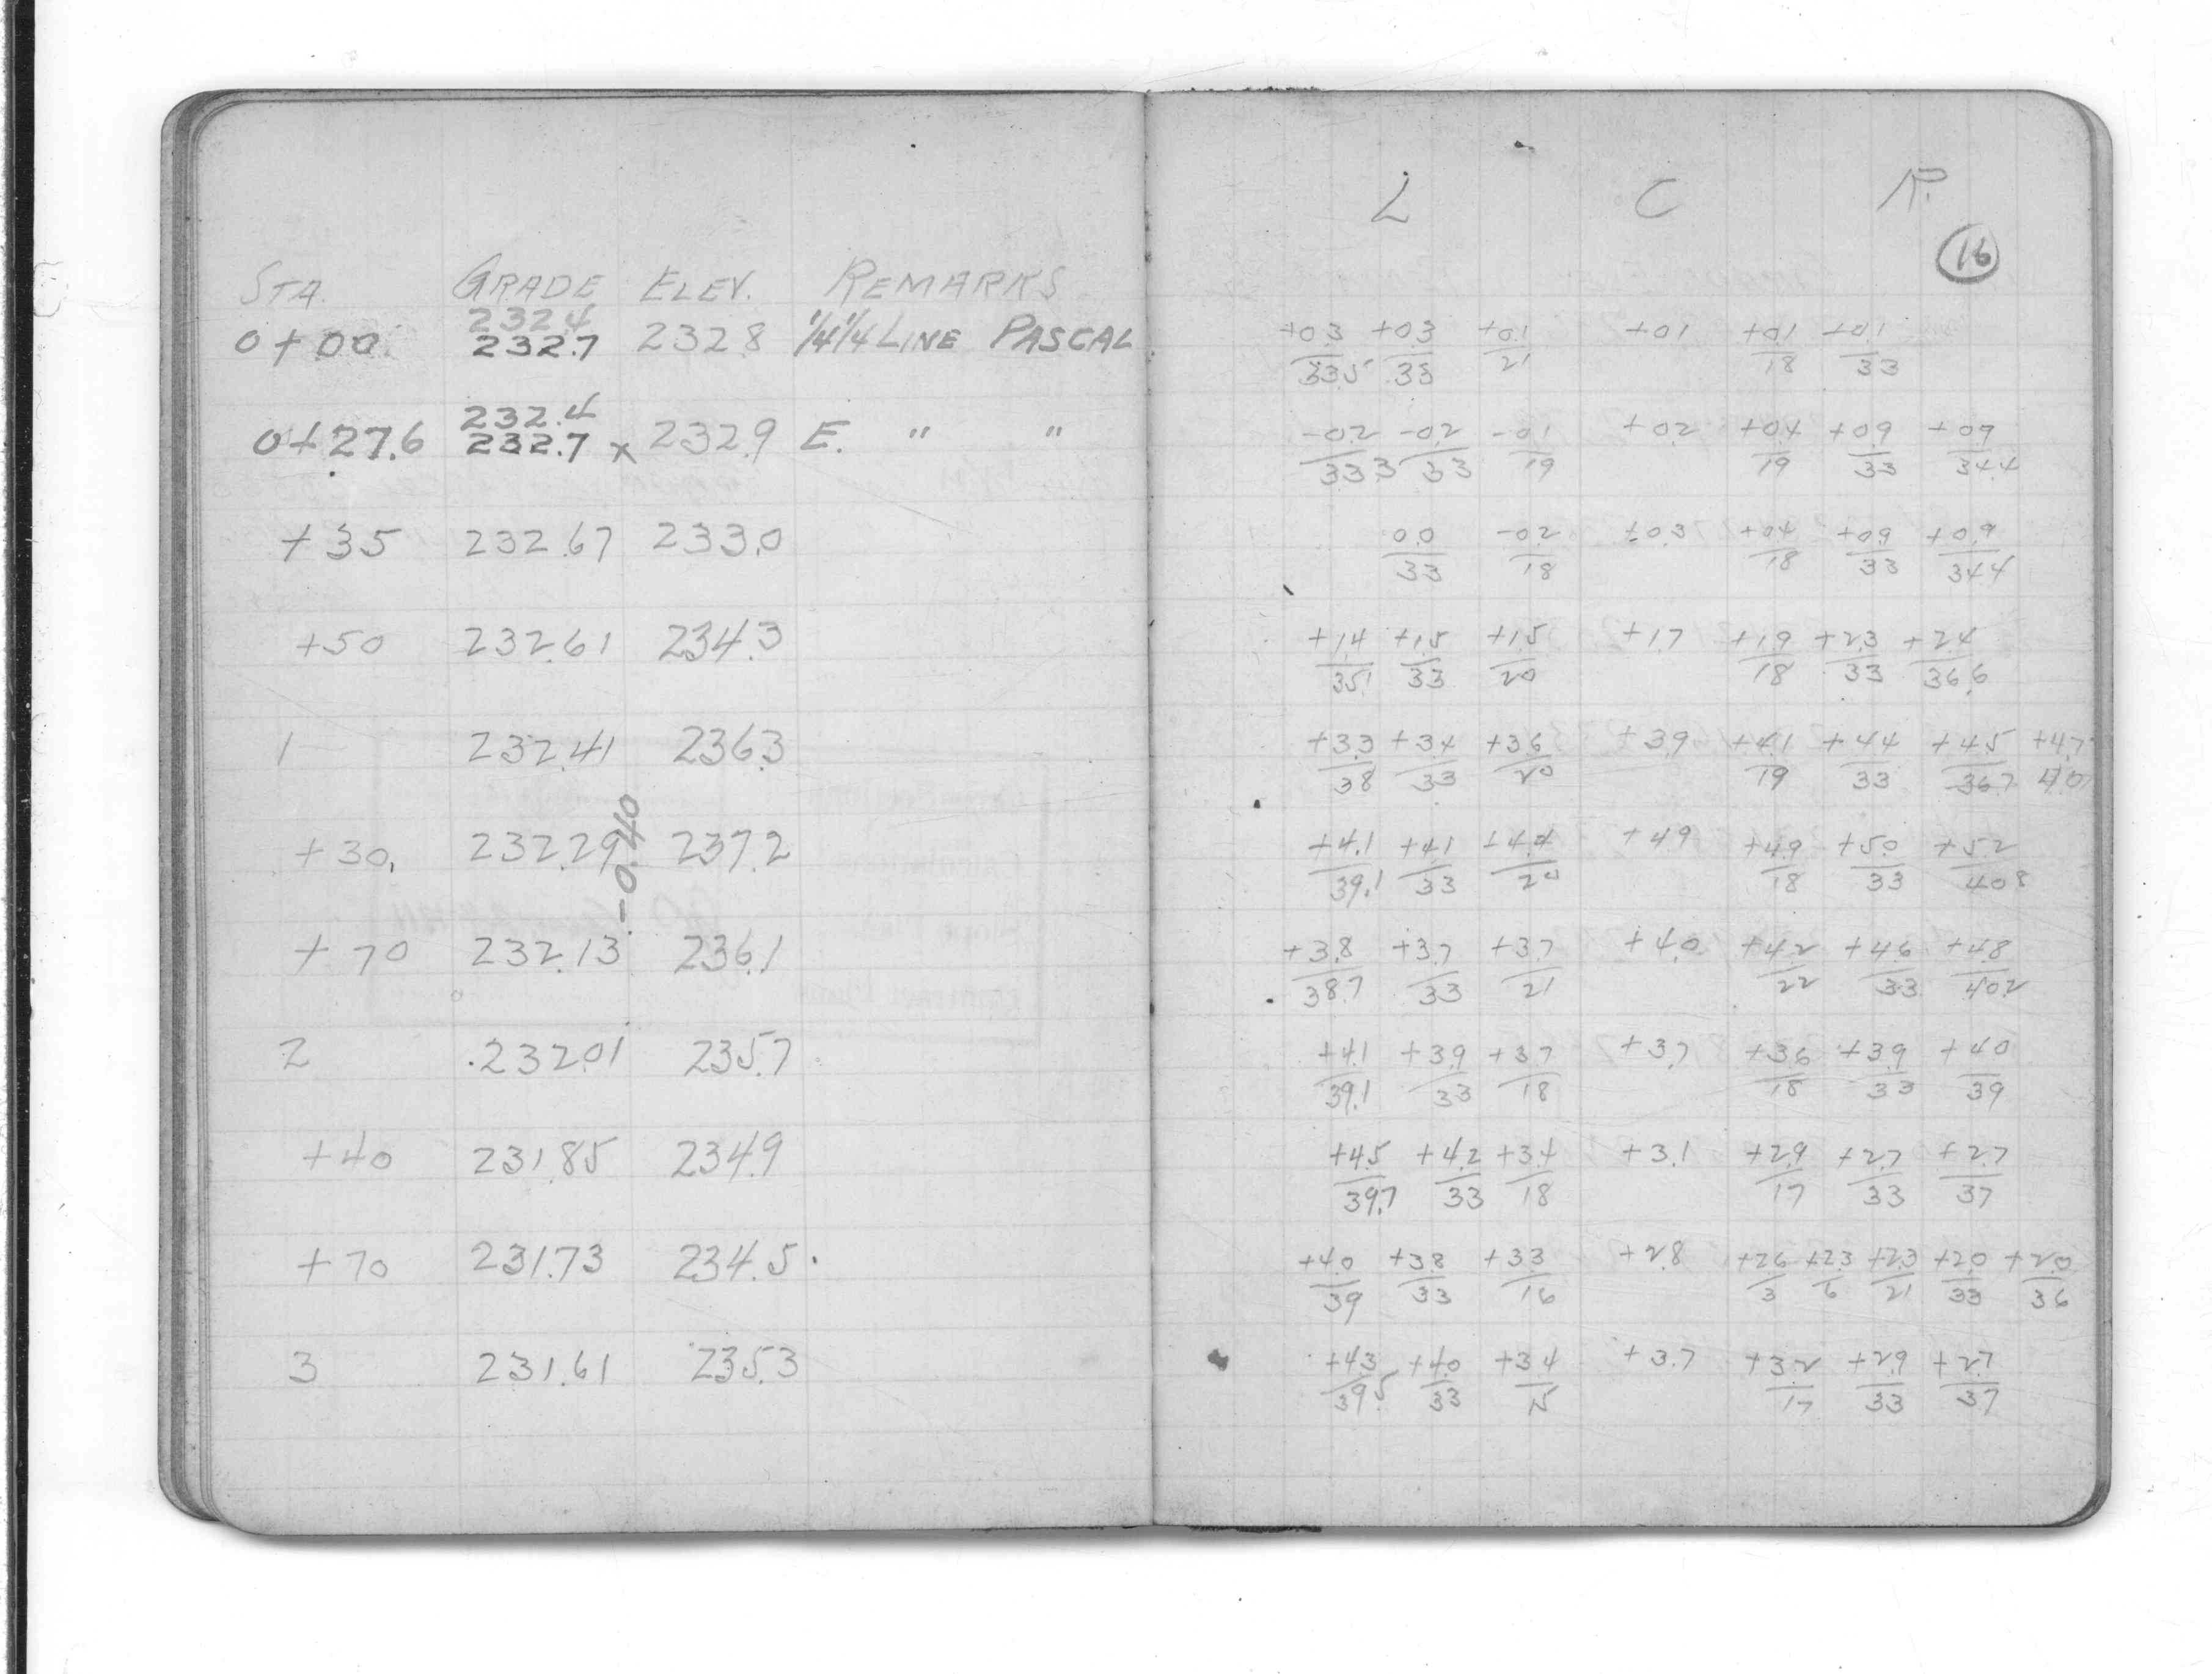 STA. GRADE ELEV. REMARKS
232.4
0+00. 232.7 232.8 1/4 1/4 LINE PASCAL
232.4
0+27.6 232.7 x 232.9 E. " "
+35 232.67 233.0
+50 232.61 234.3
1 232.41 236.3
+30. 232.29 237.2
-0.40
+70 232.13 236.1
2 232.01 235.7
+40 231.85 234.9
+70 231.73 234.5
3 231.61 235.3
L C R.
16
+0.3 +0.3 +0.1 +0.1 +0.1 +0.1
33.5 33 21 18 33
-0.2 -0.2 -0.1 +0.2 +0.4 +0.9 +0.9
33.3 33 19 19 33 34.4
0.0 -0.2 +0.3 +0.4 +0.9 +0.9
33 18 18 33 34.4
+1.4 +1.5 +1.5 +1.7 +1.9 +2.3 +2.4
35.1 33 20 18 33 36.6
+3.3 +3.4 +3.6 +3.9 +4.1 +4.4 +4.5 +4.7
38 33 20 19 33 36.7 40
+4.1 +4.1 +4.4 +4.9 +4.9 +5.0 +5.2
39.1 33 20 18 33 40.8
+3.8 +3.7 +3.7 +4.0 +4.2 +4.6 +4.8
38.7 33 21 22 33 40.2
+4.1 +3.9 +3.7 +3.7 +3.6 +3.9 +4.0
39.1 33 18 18 33 39
+4.5 +4.2 +3.4 +3.1 +2.9 +2.7 +2.7
39.7 33 18 17 33 37
+4.0 +3.8 +3.3 +2.8 +2.6 +2.3 +2.3 +2.0 +2.0
39 33 16 3 6 21 33 36
+4.3 +4.0 +3.4 +3.7 +3.2 +2.9 +2.7
39.5 33 15 17 33 37